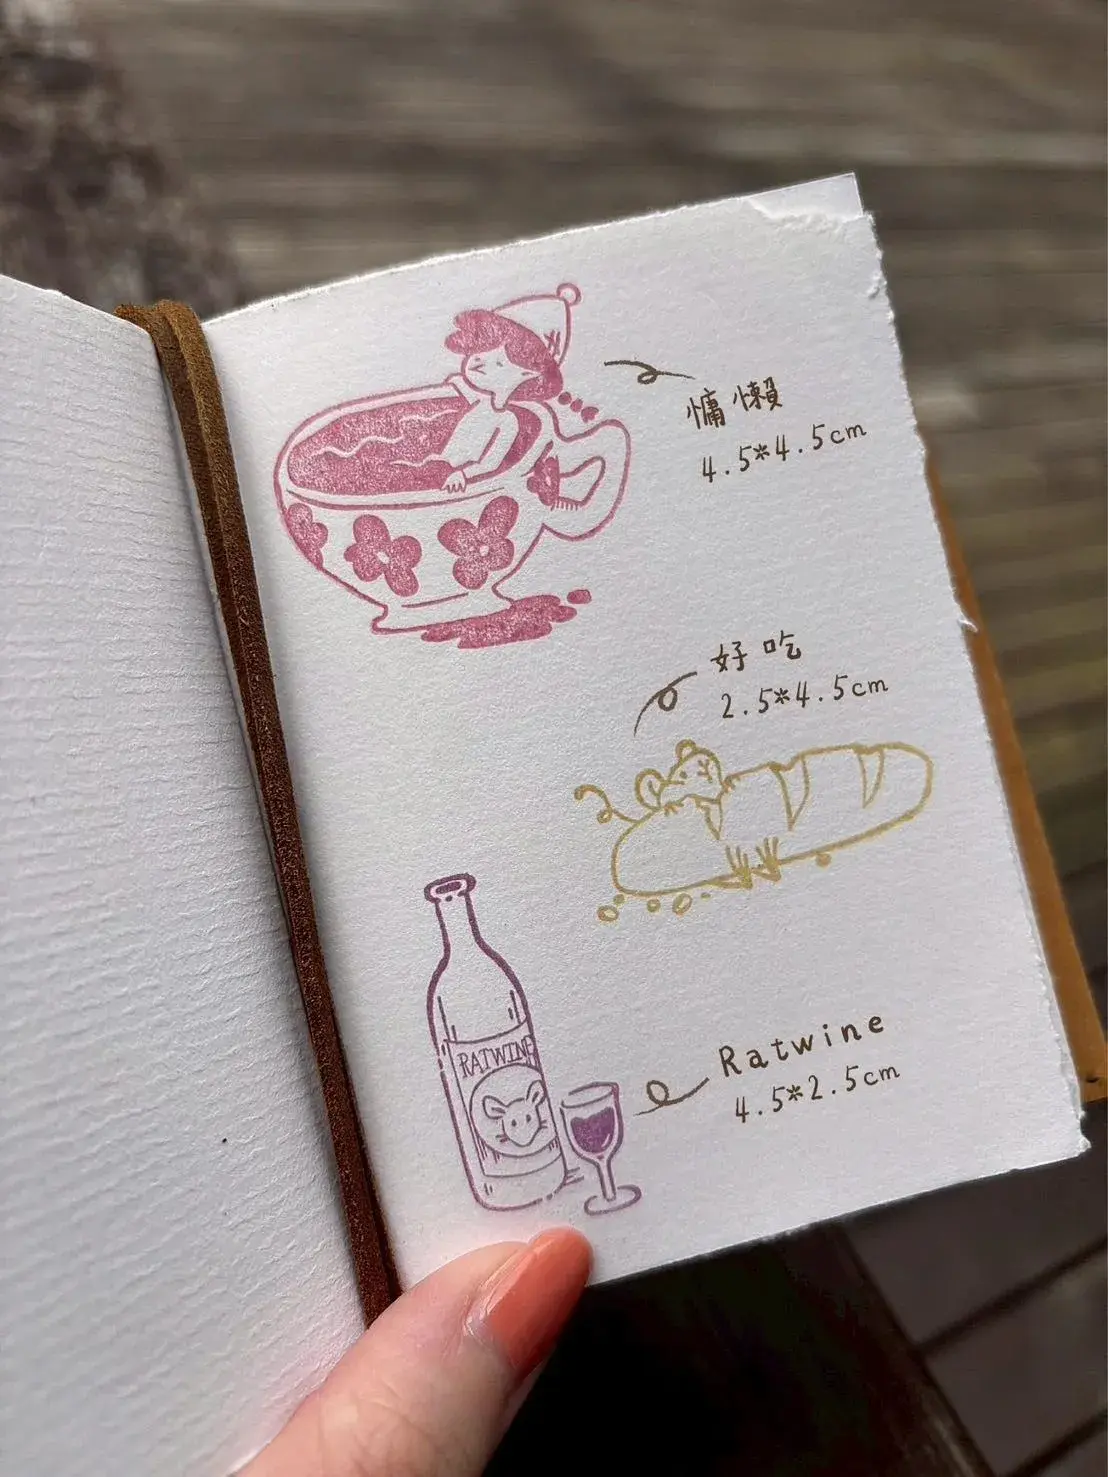 慵懶
4.5*4.5cm
好吃
2.5*4.5cm
RATWINE
Ratwine
4.5*2.5cm